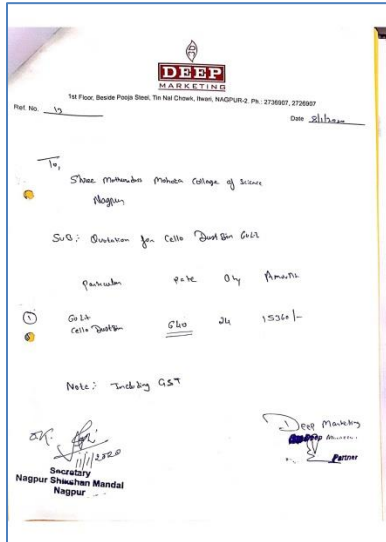 DEEP
MARKETING
1st Floor, Beside Pooja Steel, Tin Nal Chowk, Itwari, NAGPUR-2. Ph.: 2736907, 2726907
Ref. No. 19
Date 8/1/2020
To,
Shree Mathuradas Mohota College of Science
Nagpur
Sub: Quotation for Cello Dustbin 60 Lt
Particular Rate Qty Amount
① 60 Lt Cello Dustbin 640 24 15360/-
Note: Including GST
OK.
11/1/2020
Secretary
Nagpur Shikshan Mandal
Nagpur
Deep Marketing
Partner